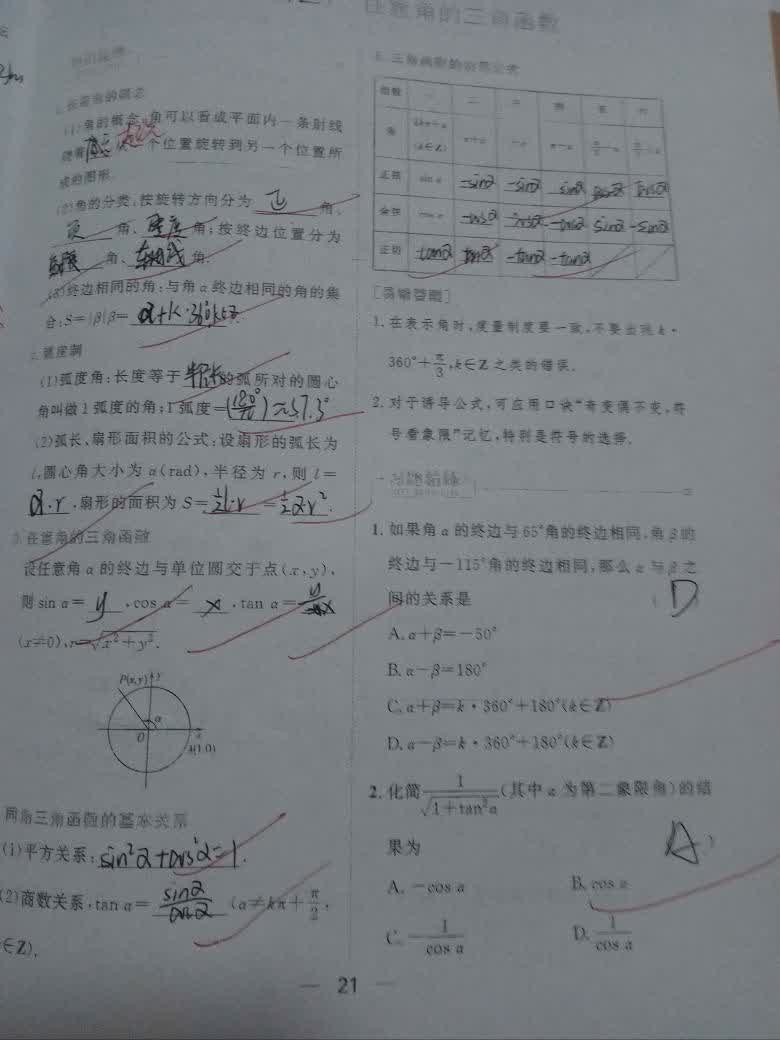 任意角的三角函数
1.任意角的概念
(1)角的概念:角可以看成平面内一条射线
绕着 一个位置旋转到另一个位置所
成的图形.
(2)角的分类:按旋转方向分为 正 角、
负 角、零度角;按终边位置分为
象限 角、轴线 角.
(3)终边相同的角:与角α终边相同的角的集
合:S={β|β= α+k·360°,k∈Z
2.弧度制
(1)弧度角:长度等于 半径长 的弧所对的圆心
角叫做1弧度的角;1弧度=(180/π)°≈57.3°
(2)弧长、扇形面积的公式:设扇形的弧长为
l,圆心角大小为α(rad),半径为r,则l=
α·r ,扇形的面积为S= ½l·r = ½α·r² .
3.任意角的三角函数
设任意角α的终边与单位圆交于点(x,y),
则sin α= y ,cos α= x ,tan α= y/x
(x≠0),r=√x²+y².
P(x,y) y
α
O x
A(1,0)
同角三角函数的基本关系
(1)平方关系: sin²α+cos²α=1.
(2)商数关系:tan α= sinα/cosα (α≠kπ+π/2,
k∈Z).
5.三角函数的诱导公式
函数 一 二 三 四 五 六
角 2kπ+α(k∈Z) π+α -α π-α π/2-α π/2+α
正弦 sin α -sinα -sinα sinα cosα cosα
余弦 cos α -cosα cosα -cosα sinα -sinα
正切 tanα tanα -tanα -tanα
[易错警醒]
1.在表示角时,度量制度要一致,不要出现k·
360°+π/3,k∈Z之类的错误.
2.对于诱导公式,可应用口诀“奇变偶不变,符
号看象限”记忆,特别是符号的选择.
1.如果角α的终边与65°角的终边相同,角β的
终边与-115°角的终边相同,那么α与β之
间的关系是 ( D
A.α+β=-50°
B.α-β=180°
C.α+β=k·360°+180°(k∈Z)
D.α-β=k·360°+180°(k∈Z)
2.化简1/√1+tan²α(其中α为第二象限角)的结
果为 A )
A.-cos α B.cos α
C.-1/cos α D.1/cos α
21